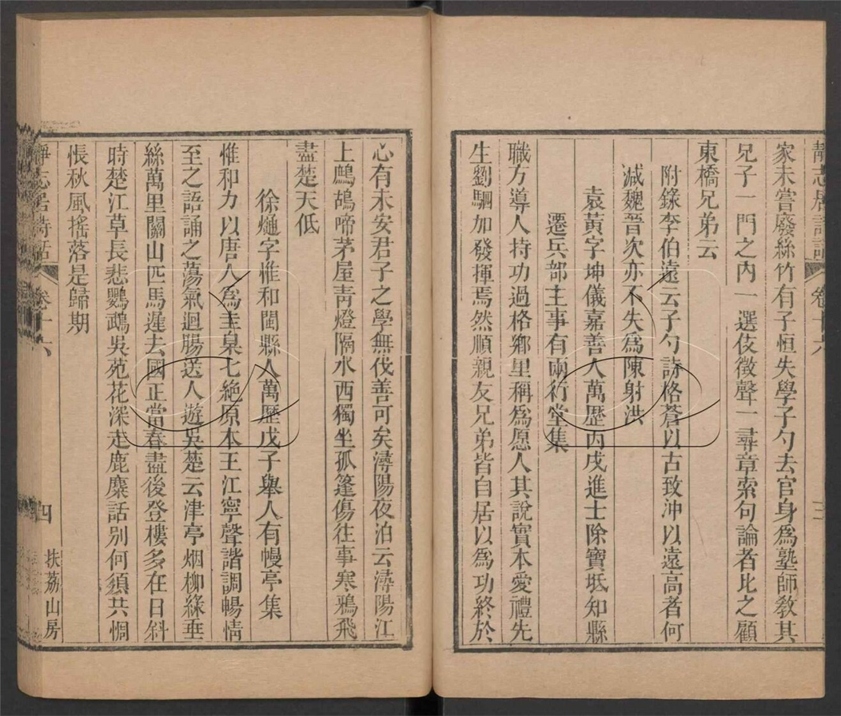 靜志居詩話 卷十六 三
家未嘗廢絲竹有子恒失學子勺去官身爲塾師敎其
兄子一門之內一選伎徵聲一尋章索句論者比之顧
東橋兄弟云
附錄李伯遠云子勺詩格蒼以古致沖以遠高者何
減魏晉次亦不失爲陳射洪
袁黃字坤儀嘉善人萬歷丙戌進士除寶坻知縣
遷兵部主事有兩行堂集
職方導人持功過格鄉里稱爲愿人其說實本愛禮先
生劉駰加發揮焉然順親友兄弟皆自居以爲功終於
心有未安君子之學無伐善可矣潯陽夜泊云潯陽江
上鷓鴣啼茅屋靑燈隔水西獨坐孤篷傷往事寒鴉飛
盡楚天低
徐𤊹字惟和閩縣人萬歷戊子舉人有幔亭集
惟和力以唐人爲圭臬七絕原本王江寧聲諧調暢情
至之語誦之蕩氣迴腸送人遊吳楚云津亭烟柳綠垂
絲萬里關山匹馬遲去國正當春盡後登樓多在日斜
時楚江草長悲鸚鵡吳苑花深走鹿麋話別何須共惆
悵秋風搖落是歸期
靜志居詩話 卷十六 四 扶荔山房